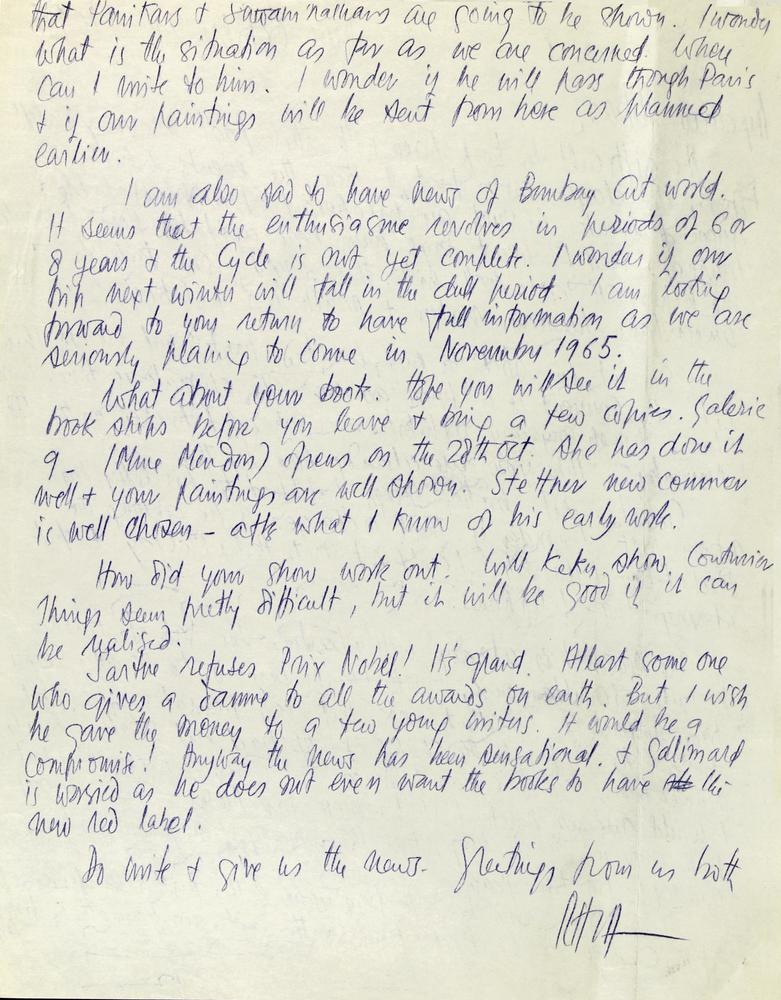 that Panikars & Swaminathans are going to be shown. I wonder
what is the situation as far as we are concerned. When
can I write to him. I wonder if he will pass through Paris
& if our paintings will be sent from here as planned
earlier.
I am also sad to have news of Bombay Art world.
It seems that the enthusiasme revolves in periods of 6 or
8 years & the Cycle is not yet complete. I wonder if our
trip next winter will fall in the dull period. I am looking
forward to your return to have full information as we are
seriously planing to come in November 1965.
What about your book. Hope you will see it in the
book shops before you leave & bring a few copies. Galerie
9 - (Mme Mendon) opens on the 28th Oct. She has done it
well & your paintings are well shown. Stettner new commer
is well chosen - after what I know of his early work.
How did your show work out. Will Keku show Couturier
Things seem pretty difficult, but it will be good if it can
be realised.
Sartre refuses Prix Nobel! It's grand. Atlast some one
who gives a damne to all the awards on earth. But I wish
he gave the money to a few young writers. It would be a
compromise! Anyway the news has been sensational. & Gallimard
is worried as he does not even want the books to have the
new red label.
Do write & give us the news - Greetings from us both